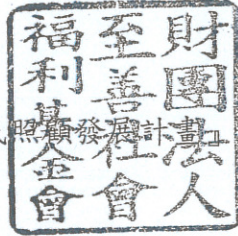 財團法人
至善社會
福利基金會
照顧發展計畫」